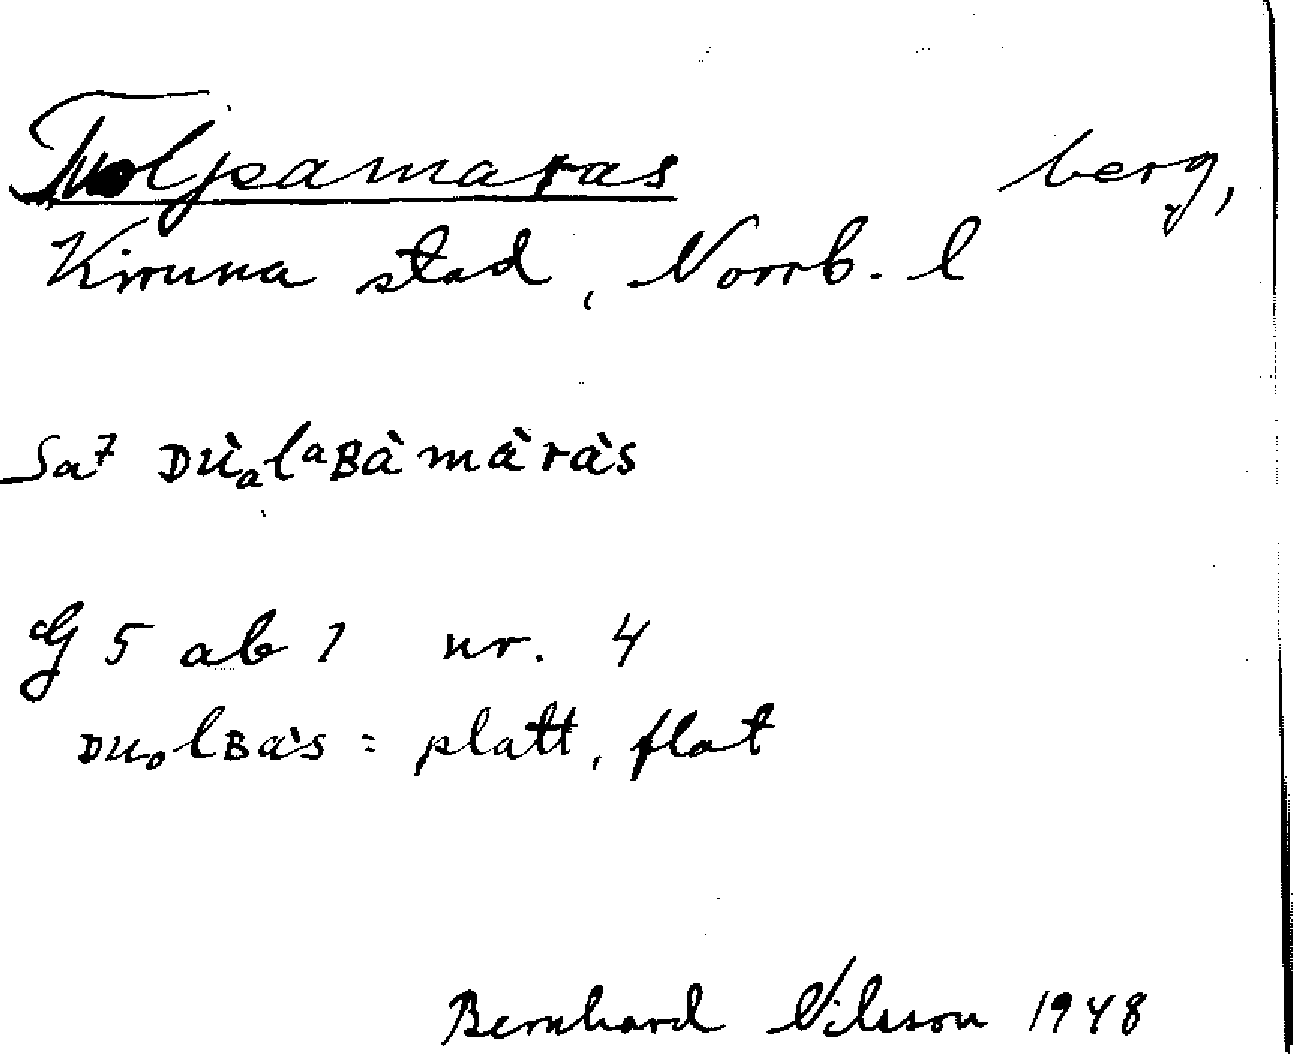 Tuolpamaras berg,
Kiruna stad, Norrb. l
Sa⁷ ᴅùₐlᵃʙàmàràs
G 5 ab 1 nr. 4
ᴅuₒlʙàs = platt, flat
Bernhard Nilsson 1948